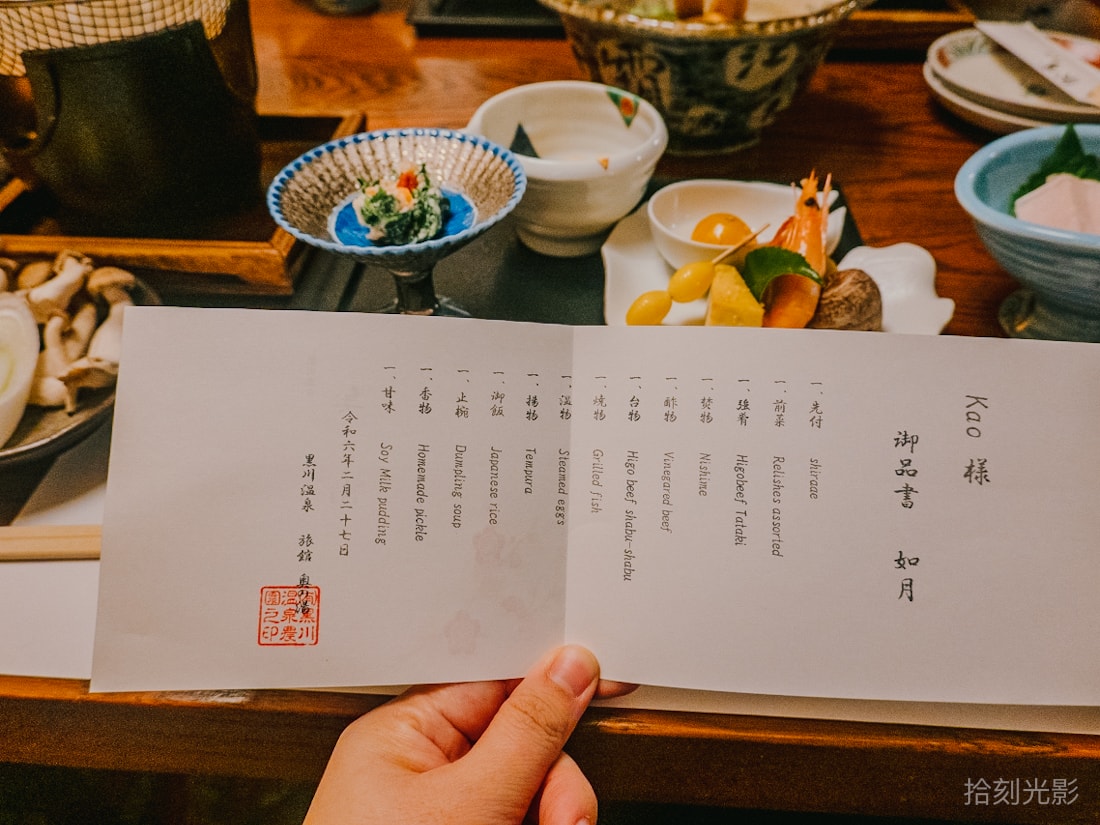 Kao 様
御品書 如月
一、先付 shiraae
一、前菜 Relishes assorted
一、強肴 Higobeef Tataki
一、焚物 Nishime
一、酢物 Vinegared beef
一、台物 Higo beef shabu-shabu
一、焼物 Grilled fish
一、温物 Steamed eggs
一、揚物 Tempura
一、御飯 Japanese rice
一、止椀 Dumpling soup
一、香物 Homemade pickle
一、甘味 Soy Milk pudding
令和六年二月二十七日
黒川温泉 旅館 奥の湯
黒川
温泉農
園之印
拾刻光影